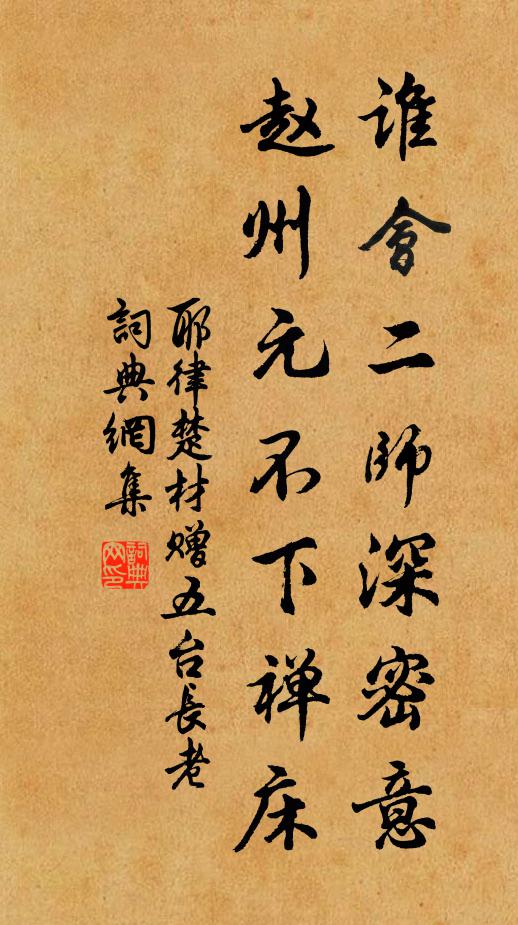 谁會二師深密意
赵州元不下禅床
耶律楚材赠五台長老
詞典網集
詞典網印